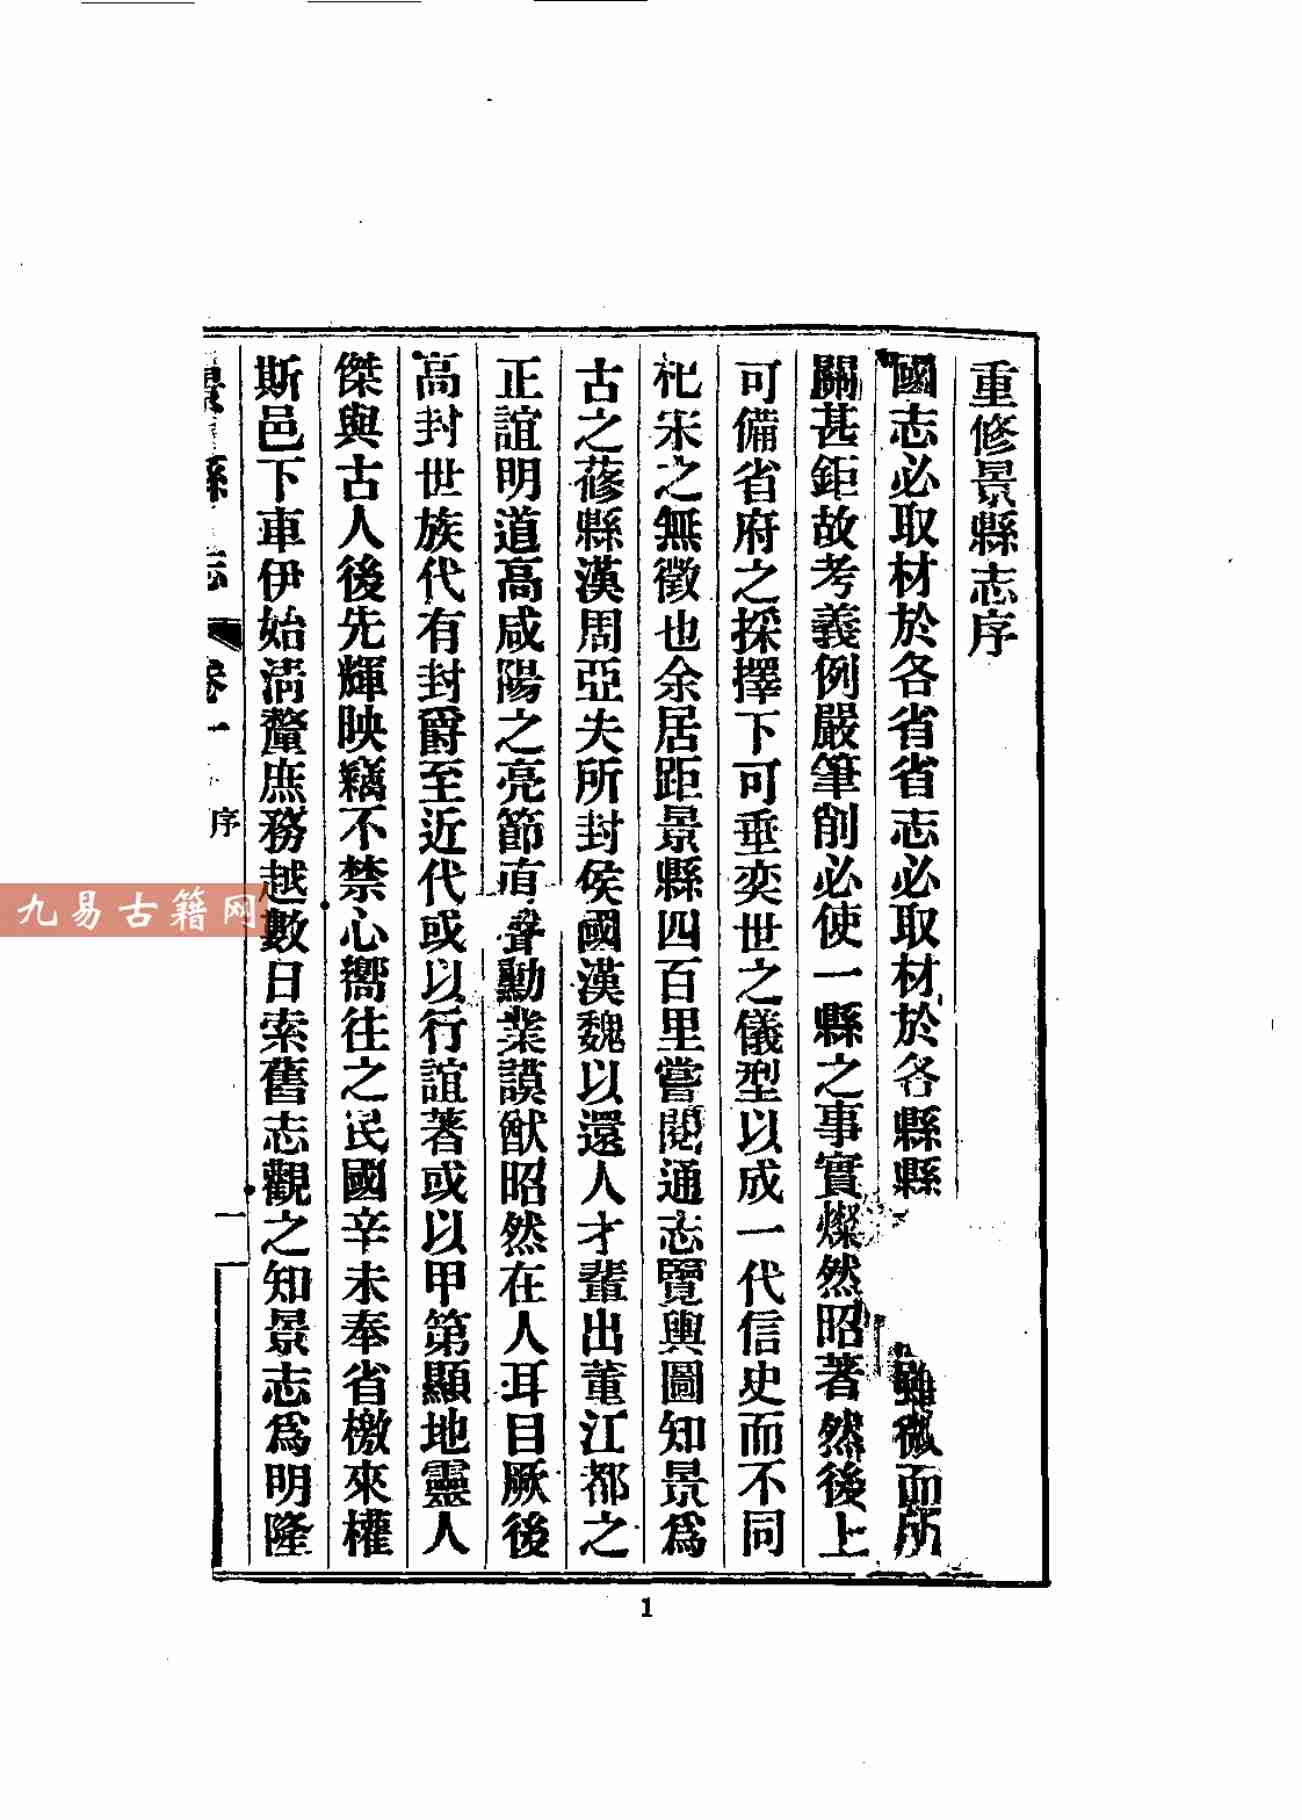 重修景縣志序
國志必取材於各省省志必取材於各縣縣雖微而所
關甚鉅故考義例嚴筆削必使一縣之事實燦然昭著然後上
可備省府之採擇下可垂奕世之儀型以成一代信史而不同
杞宋之無徵也余居距景縣四百里嘗閱通志覽輿圖知景爲
古之蓨縣漢周亞夫所封侯國漢魏以還人才輩出董江都之
正誼明道高咸陽之亮節直聲勳業謨猷昭然在人耳目厥後
高封世族代有封爵至近代或以行誼著或以甲第顯地靈人
傑與古人後先輝映竊不禁心嚮往之民國辛未奉省檄來權
斯邑下車伊始淸釐庶務越數日索舊志觀之知景志爲明隆
景縣志 卷一 序 一
九易古籍网
1